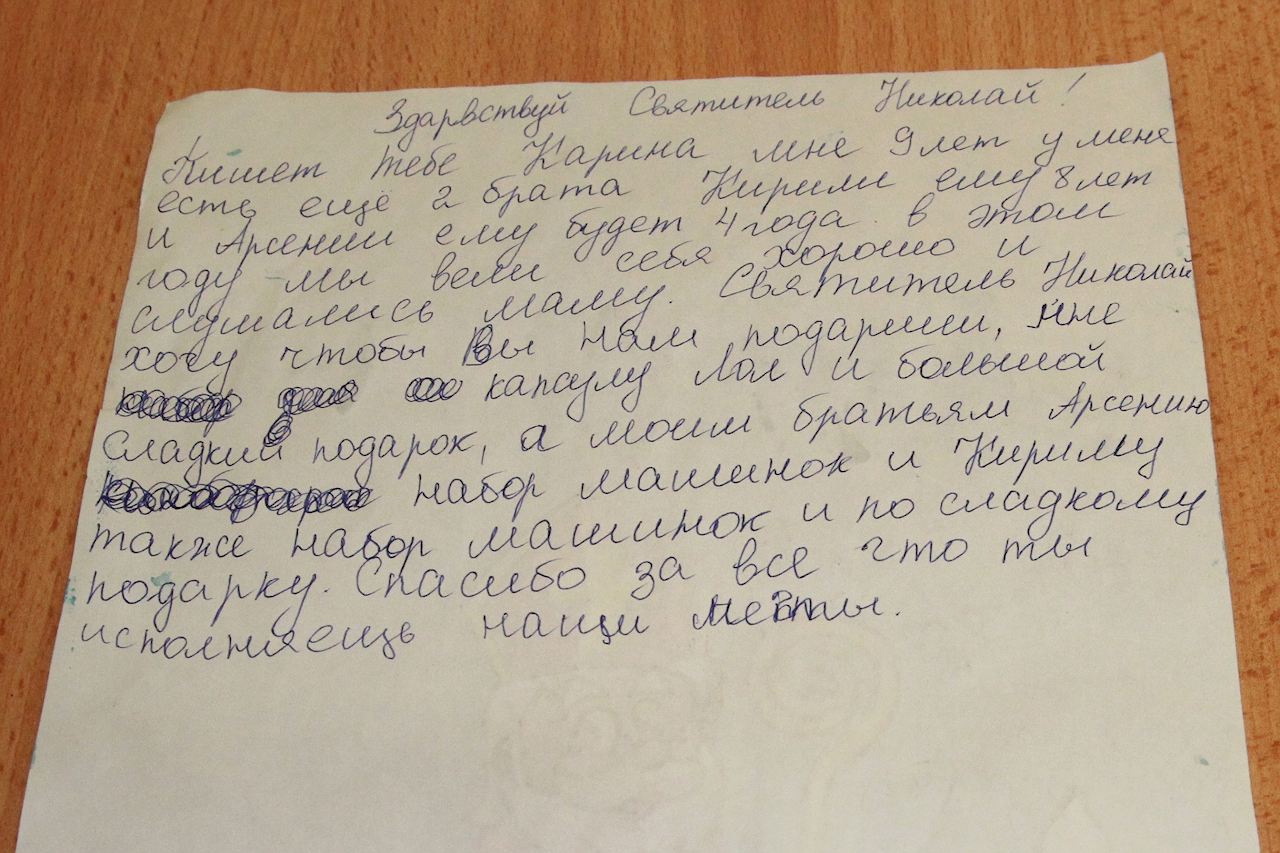 Здарвствуй Святитель Николай!
Пишет тебе Карина мне 9 лет у меня
есть ещё 2 брата Кирилл ему 8 лет
и Арсений ему будет 4 года в этом
году мы вели себя хорошо и
слушались маму. Святитель Николай
хочу чтобы Вы нам подарили, мне
капсулу Лол и большой
сладкий подарок, а моим братьям Арсению
набор машинок и Кириллу
также набор машинок и по сладкому
подарку. Спасибо за всё что ты
исполняещь наши мечты.